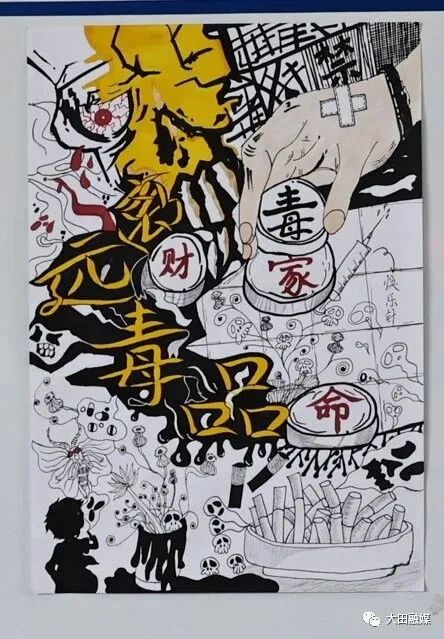 禁
毒
家
财
远离毒品
命
快乐针
大田融媒